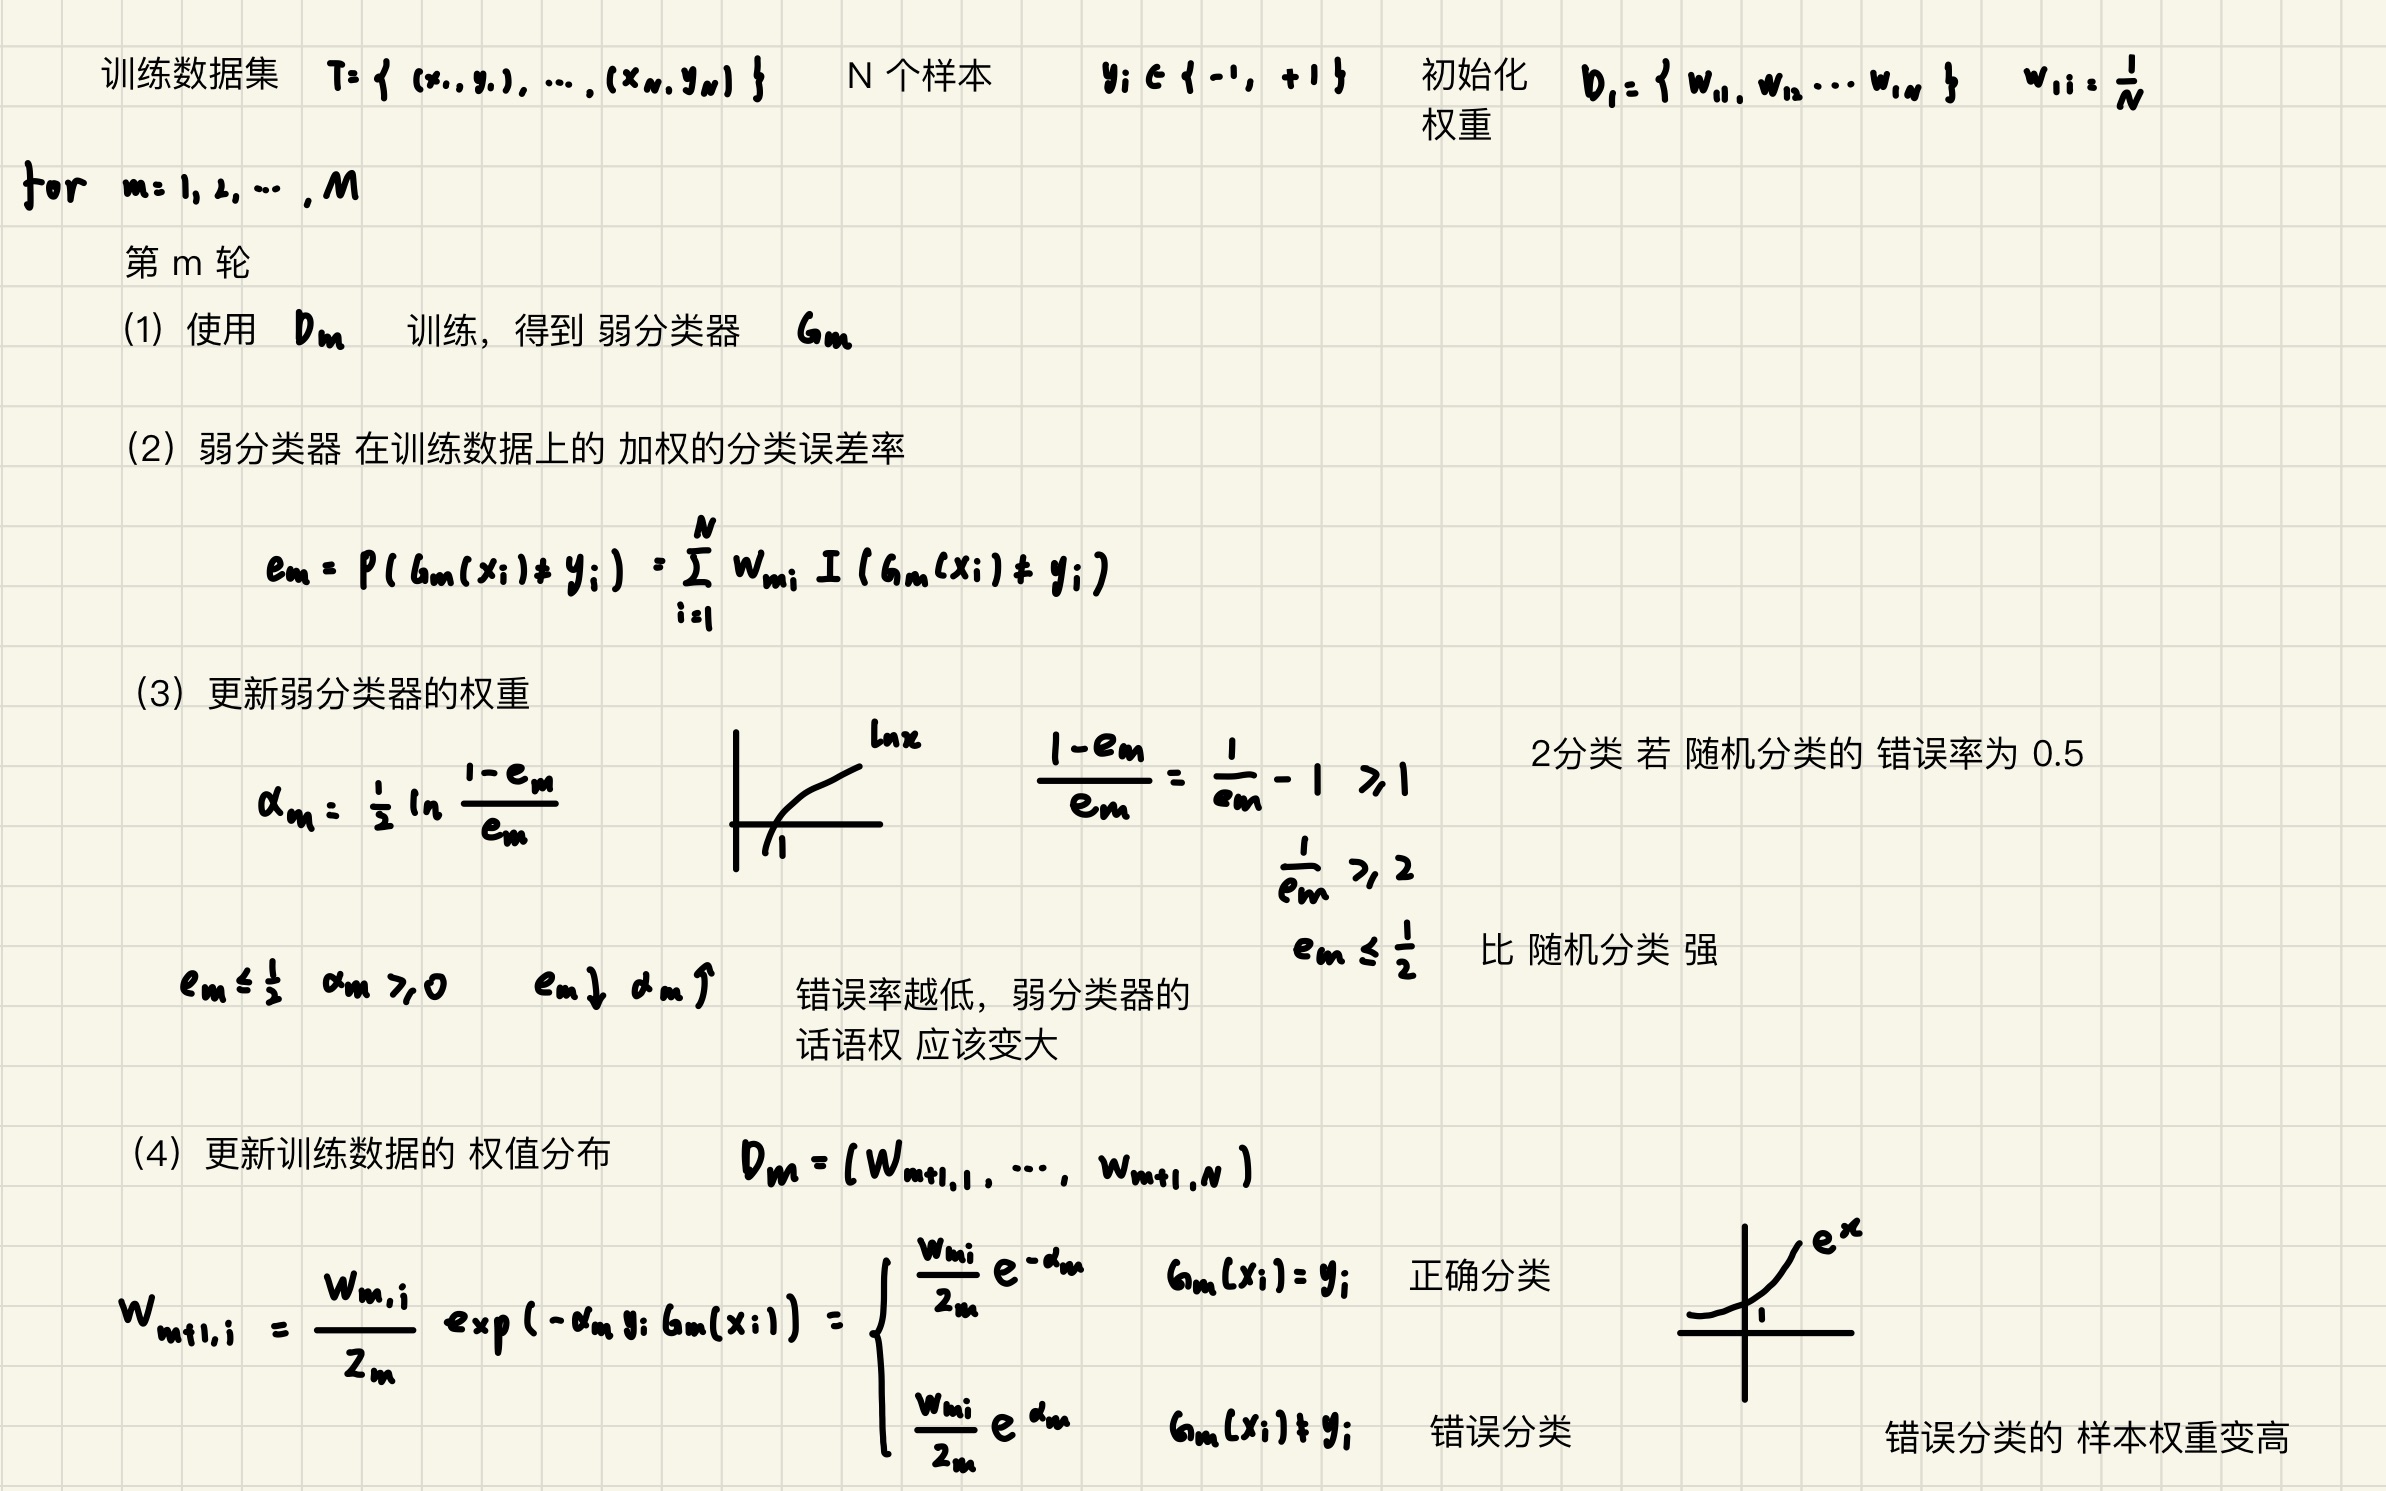 训练数据集 T={ (x₁,y₁), ⋯, (x_N,y_N) } N 个样本 y_i ∈ { -1, +1 } 初始化权重 D₁={ w₁₁, w₁₂ ⋯ w_{1N} } w_{1i} = 1/N
for m=1, 2, ⋯, M
第 m 轮
(1) 使用 D_m 训练，得到 弱分类器 G_m
(2) 弱分类器 在训练数据上的 加权的分类误差率
e_m = P(G_m(x_i)≠y_i) = ∑_{i=1}^{N} w_{mi} I (G_m(x_i)≠y_i)
(3) 更新弱分类器的权重
α_m = 1/2 ln (1-e_m)/e_m
lnx
1
(1-e_m)/e_m = 1/e_m - 1 ⩾ 1
2分类 若 随机分类的 错误率为 0.5
1/e_m ⩾ 2
e_m ≤ 1/2 比 随机分类 强
e_m ≤ 1/2 α_m ⩾ 0 e_m↓ α_m↑
错误率越低，弱分类器的
话语权 应该变大
(4) 更新训练数据的 权值分布 D_m = (w_{m+1,1}, ⋯, w_{m+1,N})
w_{m+1,i} = w_{m,i}/Z_m exp(-α_m y_i G_m(x_i)) = {
w_{mi}/Z_m e^{-α_m} G_m(x_i)=y_i 正确分类
w_{mi}/Z_m e^{α_m} G_m(x_i)≠y_i 错误分类
e^x
1
错误分类的 样本权重变高